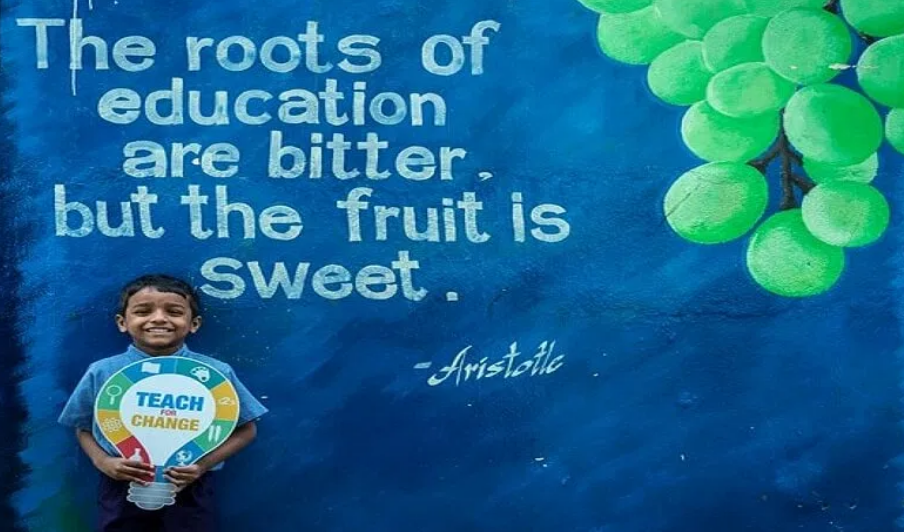 The roots of
education
are bitter,
but the fruit is
sweet.
-Aristotle
TEACH
FOR
CHANGE